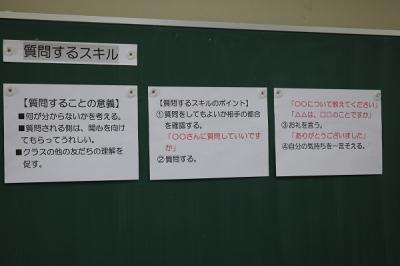 質問するスキル
【質問することの意義】
■何が分からないかを考える。
■質問される側は、関心を向け
てもらってうれしい。
■クラスの他の友だちの理解を
促す。
【質問するスキルのポイント】
①質問をしてもよいか相手の都合
を確認する。
「〇〇さんに質問していいです
か」
②質問する。
「〇〇について教えてください」
「△△は、□□のことですか」
③お礼を言う。
「ありがとうございました」
④自分の気持ちを一言そえる。